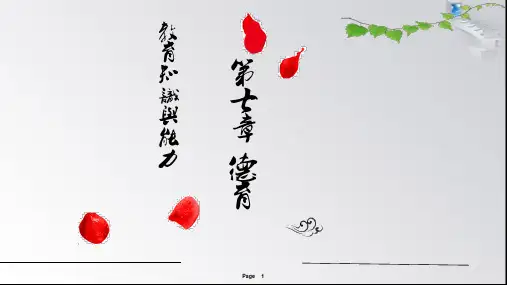 第七章 德育
教育知識與能力
Page 1